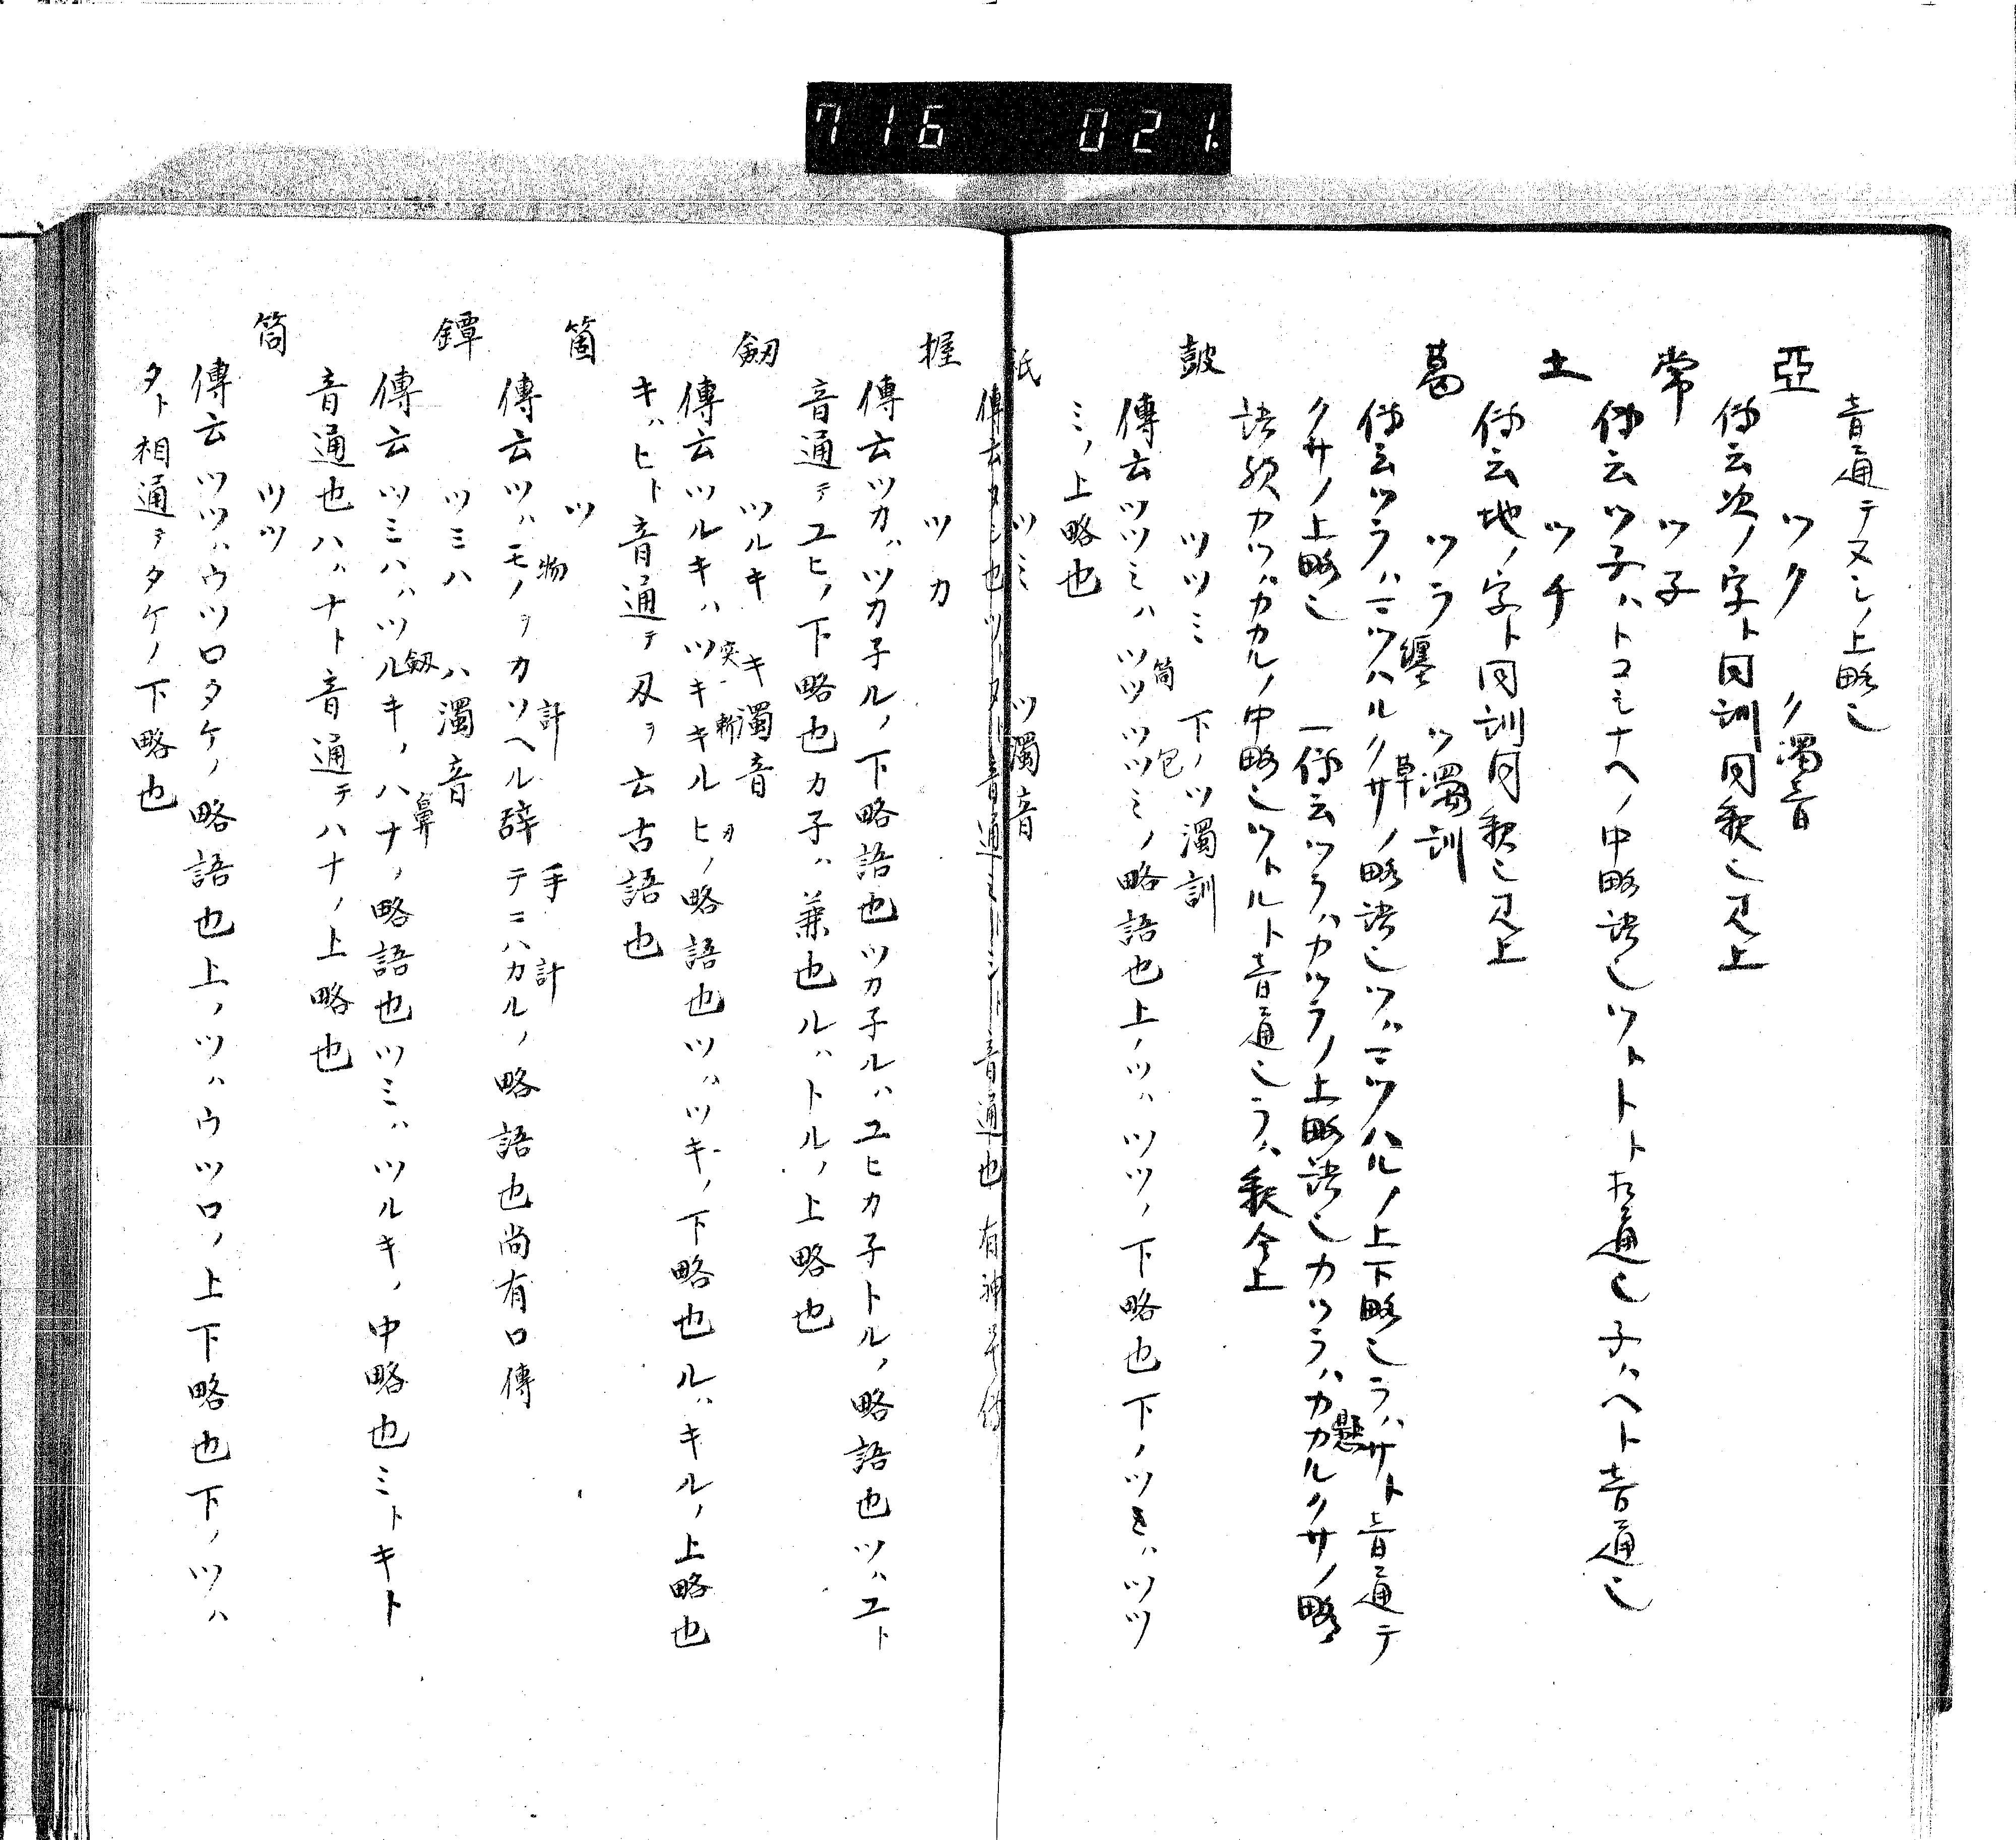 716 021
音通テヌシノ上略也
亞 ツク ク濁音
傳云次ノ字ト同訓同釈也見上
常 ツ子
傳云ツ子ハトコシナヘノ中略語也ツトトト相通也子ハヘト音通也
土 ツチ
傳云地ノ字ト同訓同釈也見上
葛 ツラ ツ濁訓
傳云ツラハマツハルクサノ略語也ツハマツハルノ上下略也ラハサト音通テ
纏 草
クサノ上略也 一傳云ツラハカツラノ上略語也カツラハカカルクサノ略
懸
語歟カツハカカルノ中略也ツトルト音通也ラハ釈今上
鼓 ツツミ 下ノツ濁訓
傳云ツツミハツツツツミノ略語也上ノツハツツノ下略也下ノツミハツツ
筒 包
ミノ上略也
ツミ ツ濁音
傳云タシ也ツトタト音通ミトシト音通也
握 ツカ
傳云ツカハツカ子ルノ下略語也ツカ子ルハユヒカ子トルノ略語也ツハユト
音通テユヒノ下略也カ子ハ兼也ルハトルノ上略也
劒 ツルキ キ濁音
傳云ツルキハツキキルヒノ略語也ツハツキノ下略也ルハキルノ上略也
突 斬 刃
キハヒト音通テ刃ヲ云古語也
箇 ツ
傳云ツハモノヲカソヘル辞テニハカルノ略語也尚有口傳
物 計 手 計
鐔 ツミハ ハ濁音
傳云ツミハハツルキノハナノ略語也ツミハツルキノ中略也ミトキト
劒 鼻
音通也ハハナト音通テハナノ上略也
筒 ツツ
傳云ツツハウツロタケノ略語也上ノツハウツロノ上下略也下ノツハ
タト相通ヲタケノ下略也